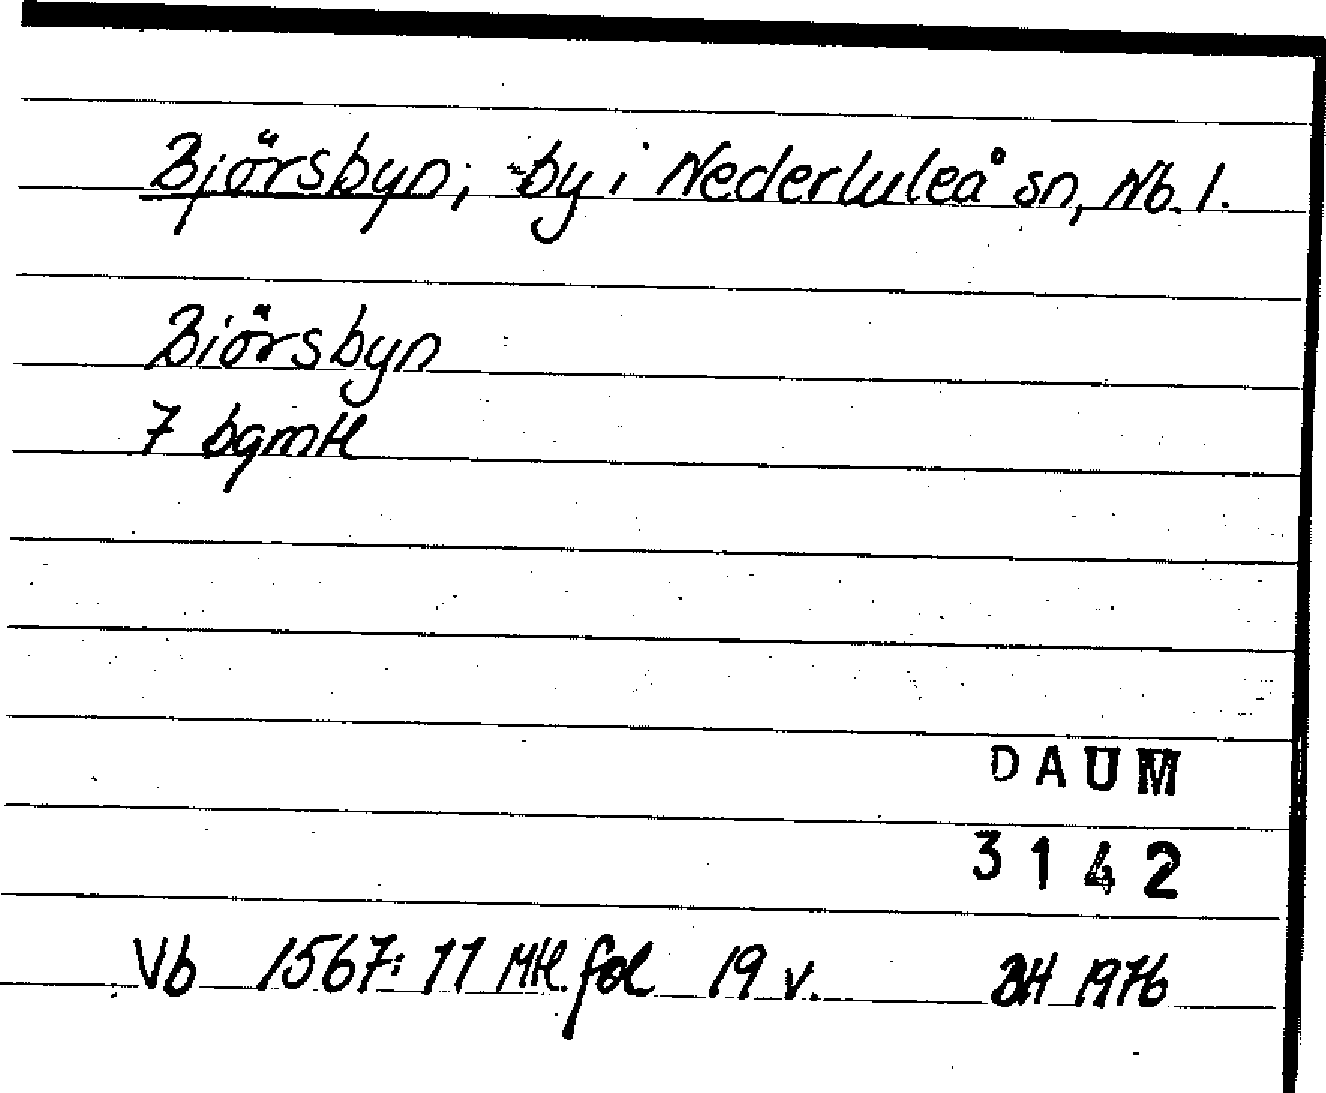 Björsbyn; by i Nederluleå sn, Nb. l.
Biörsbyn
7 bgmtl
DAUM
3142
Vb 1567:11 Mtl fol 19 v. BH 1976